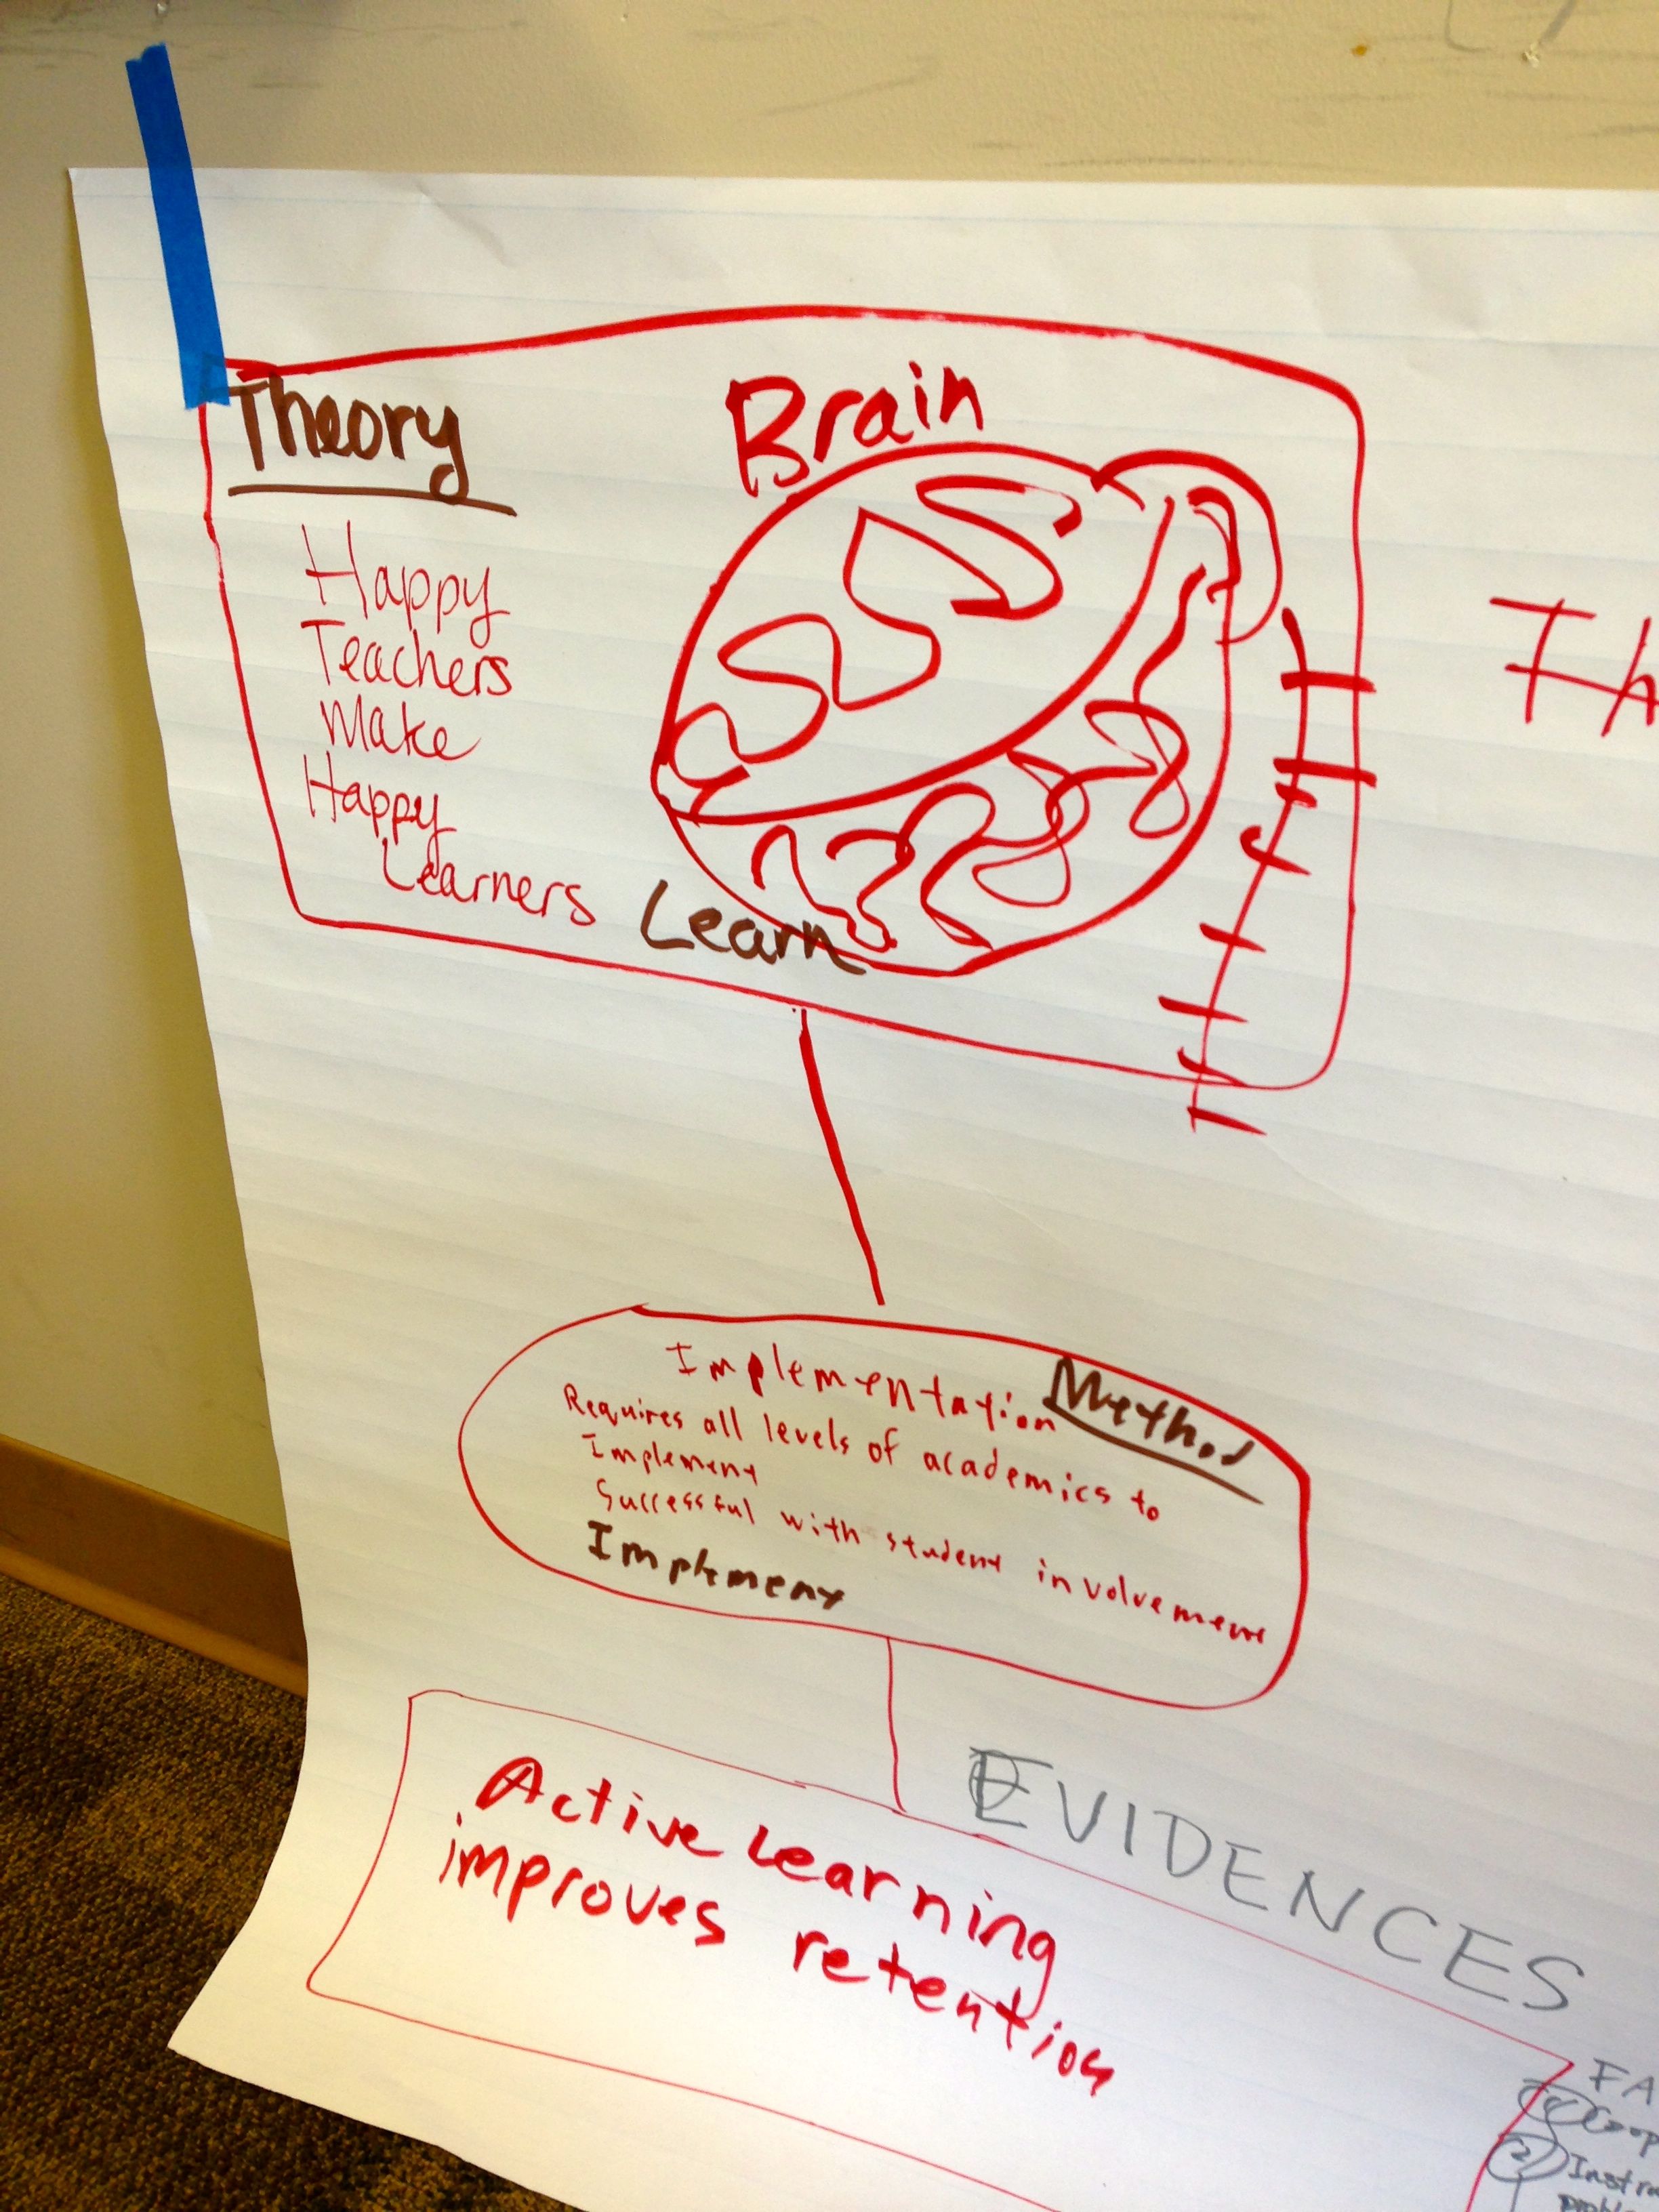 Theory
Happy
Teachers
Make
Happy
Learners
Brain
Learn
Th
Implementation
Method
Requires all levels of academics to
Implement
Successful with student involvement
Implement
EVIDENCES
Active Learning
improves retention
FA
Coop
2 Instru